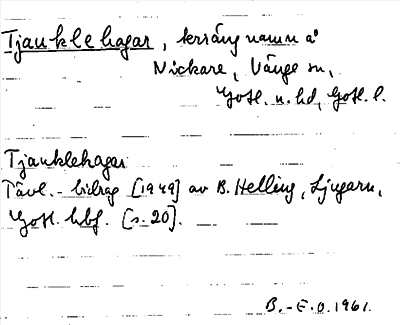 Tjauklehagar, terrängnamn å
Nickare, Vänge sn,
Gotl. n. hd, Gotl. l.
Tjauklehagar
Tävl.-bidrag [1949] av B. Helling, Ljugarn,
Gotl. hbf. [s. 20].
B.-E. O. 1961.